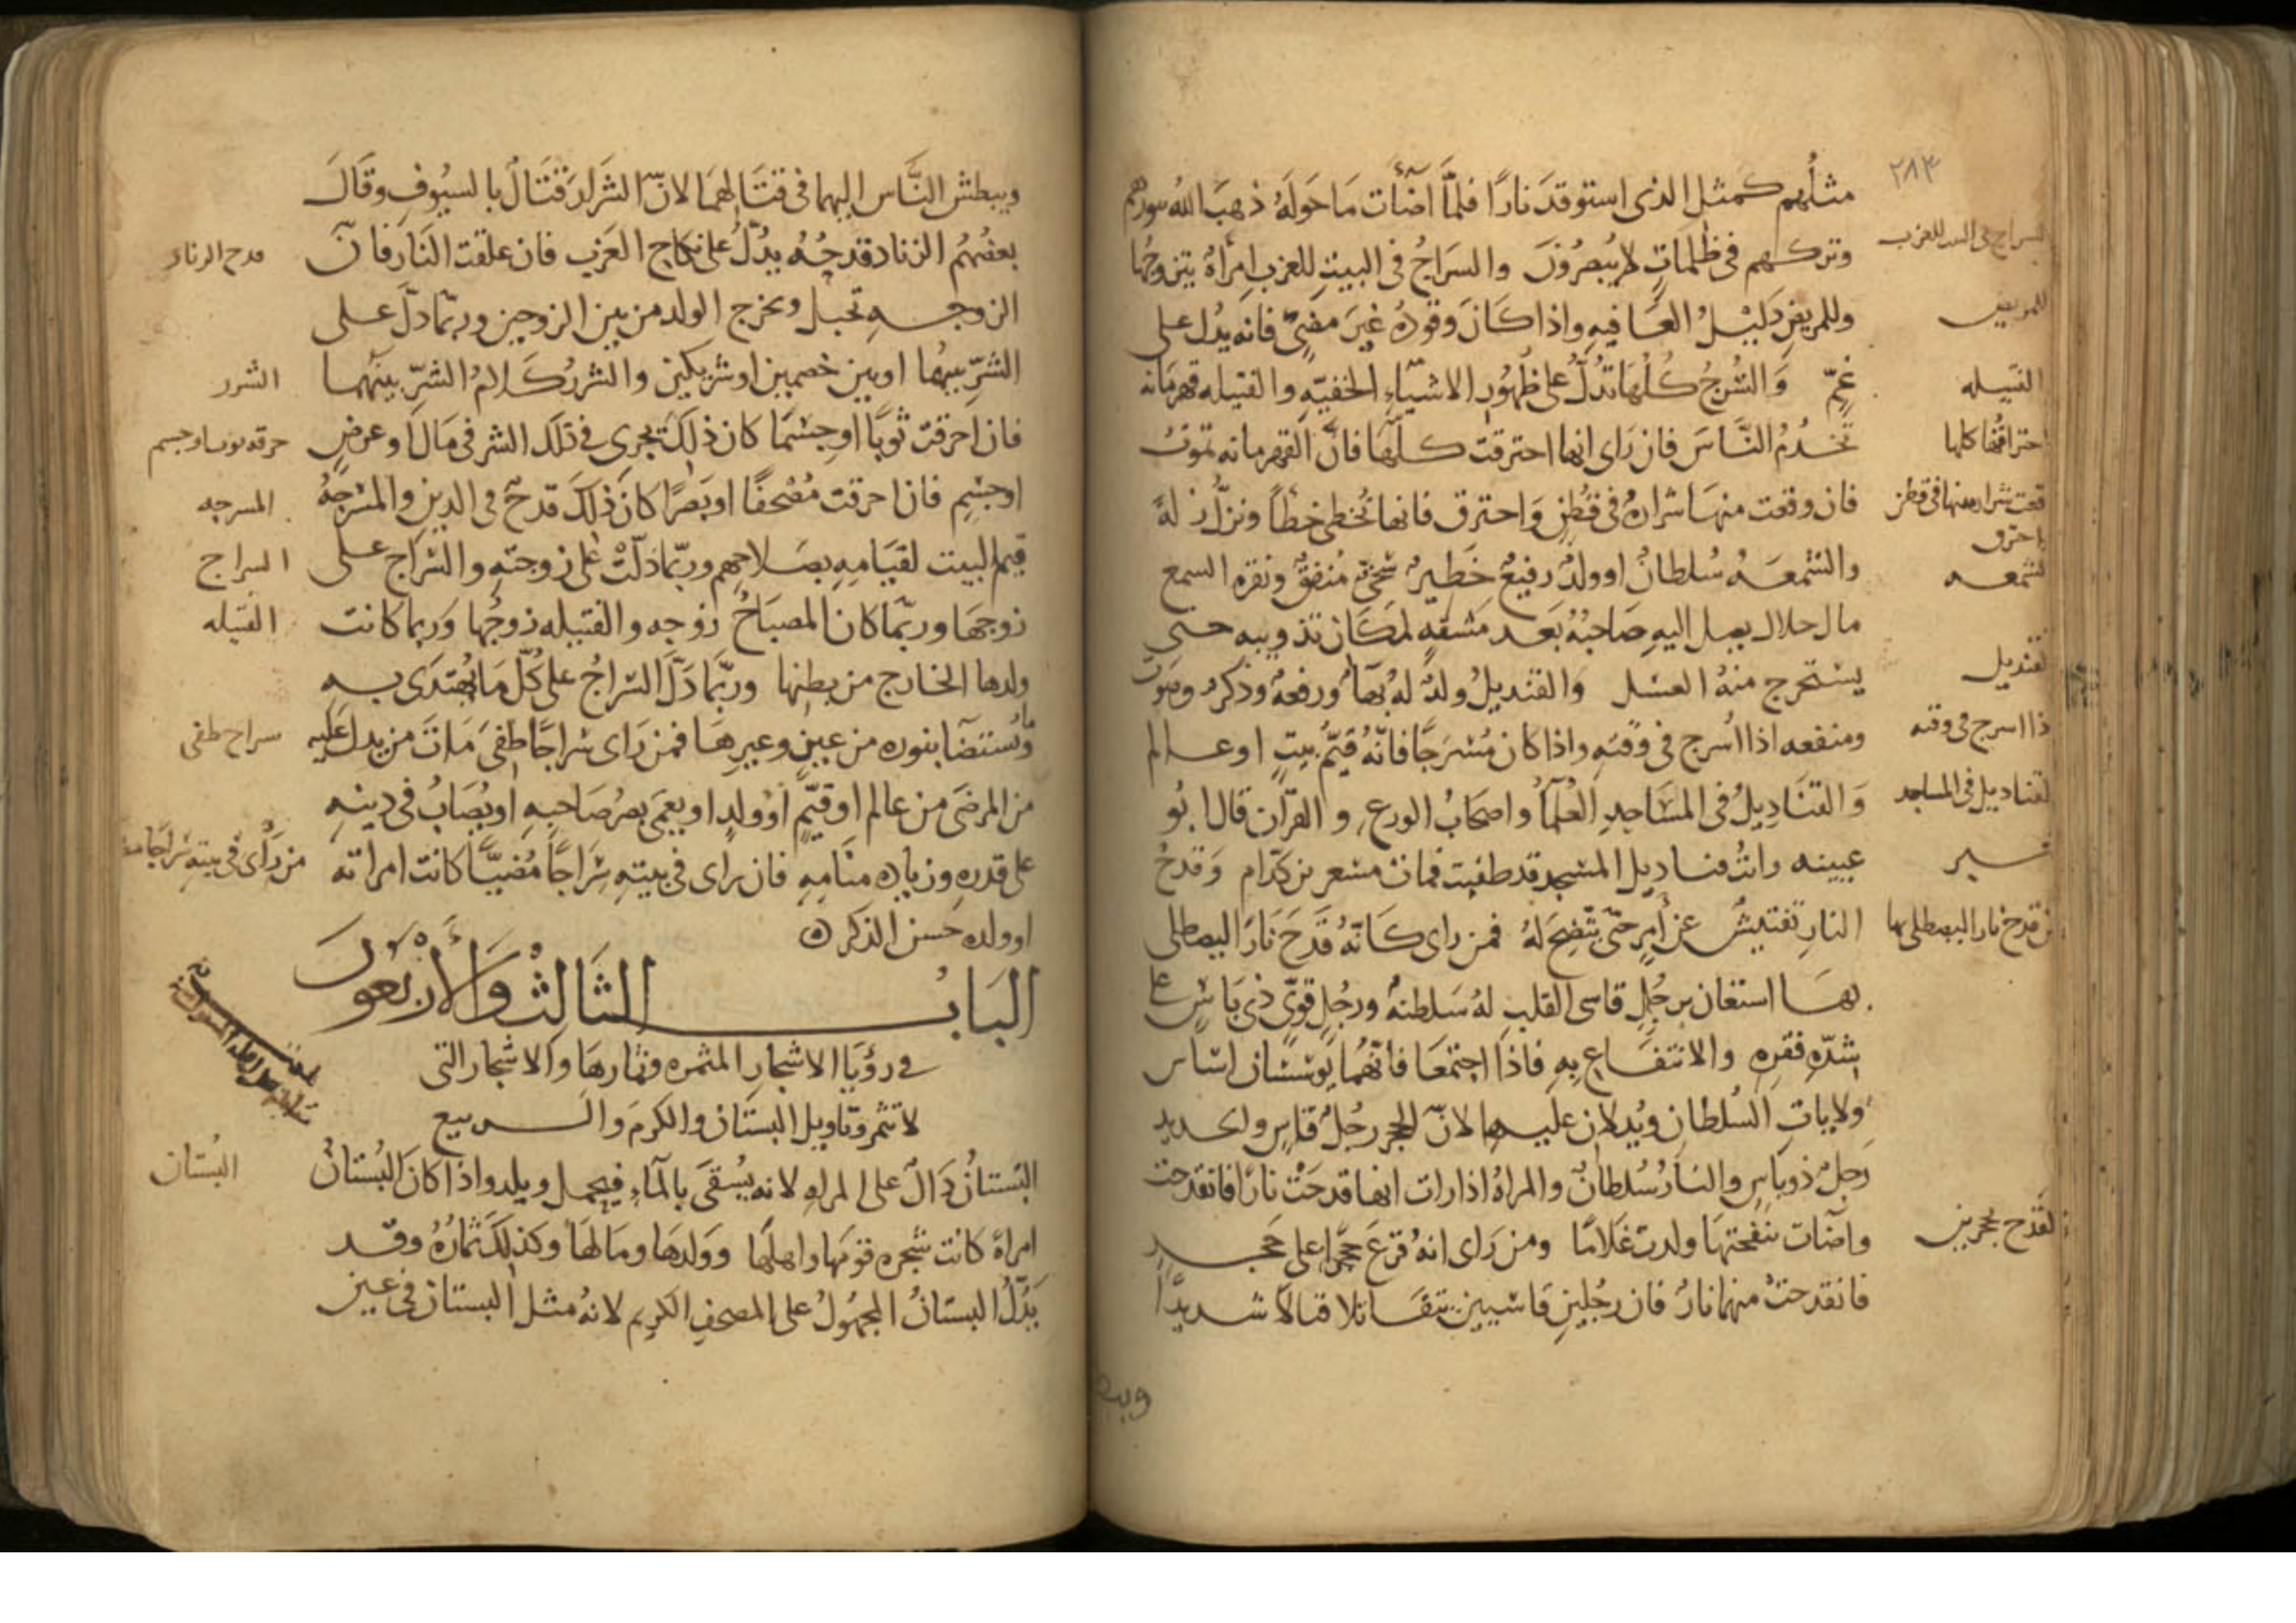 ٢٨٣
مثلهم كمثل الذى استوقد نارًا فلمّا اضآءت مَا حَولَهُ ذهبَ اللهُ بنورهم
وتركهم فى ظلماتٍ لا يُبصرُونَ والسرَاجُ فى البيتِ للعزبِ امرأة يتزوجُها
وللمريضِ دَليْلُ العَافيهِ واذا كَانَ وقودُهُ غيرَ مضئٍ فانه يدُل على
غمٍّ وَالسُّرجُ كُلّهَا تدُلُّ على ظهُورِ الاشيَاءِ الخفيّهِ والفتيله قهرمَانه
تخدُمُ النَّاسَ فان رَاى انها احترقت كلّهَا فانَّ القهرمانه تموتُ
فان وقعت منهَا شرارهٌ فى قُطنٍ وَاحترق فانها تُخطى خطأً وتزلّ زلهً
والشّمعَهُ سُلطانٌ او ولدٌ رفيعٌ خَطيرٌ سخىٌّ مُنفقٌ ونقره الشمع
مال حلال يصل اليهِ صَاحبُهُ بَعد مَشقهٍ لمكَان تذويبه حتى
يستخرج منهُ العسَل والقنديلُ ولدٌ لهُ بهَآءٌ ورفعهٌ وذكرٌ وصَوت
ومنفعه اذا أُسرج فى وقتهِ واذا كان مُسْرَجًا فانّهُ قيّمُ بيتٍ او عالم
وَالقنَاديلُ فى المسَاجدِ العُلمآءُ واصحَابُ الورعِ والقرآن قال ابُو
عيينه رايتُ قناديل المسْجد قد طفيت فمات مسْعر بن كدَام وَقدحُ
النارِ تفتيشٌ عن أمرٍ حتّى يتّضحَ لهُ فمن راى كانّهُ قدَحَ نَارًا ليصطلى
بهَا استعَان برجُلٍ قاسى القلبِ لهُ سَلطنهٌ ورجُلٍ قوىٍّ ذى بَاسٍ على
شدّه فقره والانتفَاعِ بهِ فاذا اجتمعَا فانّهُما يؤسّسَان اسَاس
ولاياتِ السُلطان ويُدلان عليهما لانّ الحجر رجُلٌ قاسٍ والحديد
رَجلٌ ذو بَاسٍ والنارُ سُلطانٌ والمراهُ اذا رات انها قدحَتْ نارًا فانقدحت
واضآت بنفختها ولدت غلامًا ومن رَاى انهُ قرعَ حجرًا على حَجر
فانقدحتْ منهما نارٌ فان رجُلينِ قاسيين يتقَاتلا قتالاً شديدًا
السراج فى البيت للعزب
للمريض
الفتيله
احتراقُها كلها
قعت شراره منها فى قطن
واحترق
لشمعه
لقنديل
ذا اسرج فى وقته
لقناديل فى المساجد
من قدح نارا ليصطلى بها
لقَدح بحجرين
ويبط
ويبطش النَّاس اليهما فى قتَالهمَا لانّ الشرار قتَالٌ بالسيُوفِ وقَالَ
بعضُهُم الزناد قدحُهُ يدُلّ على نكاح العزب فان علقت النَار فانّ
الزوجهِ تحبل ويخرج الولد من بين الزوجين وربّما دلّ على
الشرِّ بينهُما او بين خصمين او شريكين والشررُ كَلامُ الشرّ بينهُما
فان احرقت ثوبًا او جسْمًا كان ذلكَ يجرى فى ذلك الشر فى مَالٍ او عرضٍ
او جسْمٍ فان احرقت مُصْحفًا او بَصرًا كان ذلكَ قدحٌ فى الدين والمسْرجهُ
قيم البيت لقيَامِهِ بصَلاحهم وربّما دَلّتْ على زوجتهِ والسّراج على
زوجهَا وربّما كان المصبَاحُ زوجه والفتيله زوجُها وَربما كانت
ولدها الخارج من بطنها وربّما دَلّ السّراجُ على كُلّ مَا يُهتدَى به
ويُستضَا بنوره من عينٍ وغيرهَا فمن رَاى سراجًا طفى مَاتَ من يدل عَليه
من المرضَى من عالم او قيّمٍ او ولدٍ او يعمَى بصرُ صَاحبهِ او يُصَابُ فى دينهِ
على قدره وزياده منَامِهِ فان رَاى فى بيتهِ سرَاجًا مُضيًّا كانت امراته
او ولده حَسن الذكر
البَابُ الثَالثُ وَالأَربَعُونَ
فى رؤيَا الاشجارِ المثمره وثمارهَا والاشجار التى
لا تثمر وتاويل البسْتان والكرم والربيع
البُستانُ دَالّ على المراهِ لانه يُسْقَى بالمآءِ فيحمل ويلد واذا كانَ البُستانُ
امراةً كانت شجره قومهَا واهلهَا وَولدهَا ومَالهَا وكذلكَ ثمارُهُ وقد
يَدُلّ البسْتانُ المجهُولُ على المصحفِ الكريم لانهُ مثل البستان فى عين
قدح الزناد
الشرر
حرقه ثوبا وجسم
المسرجه
السراج
الفتيله
سراج طفى
من رأى فى بيته سراجًا
البُستان